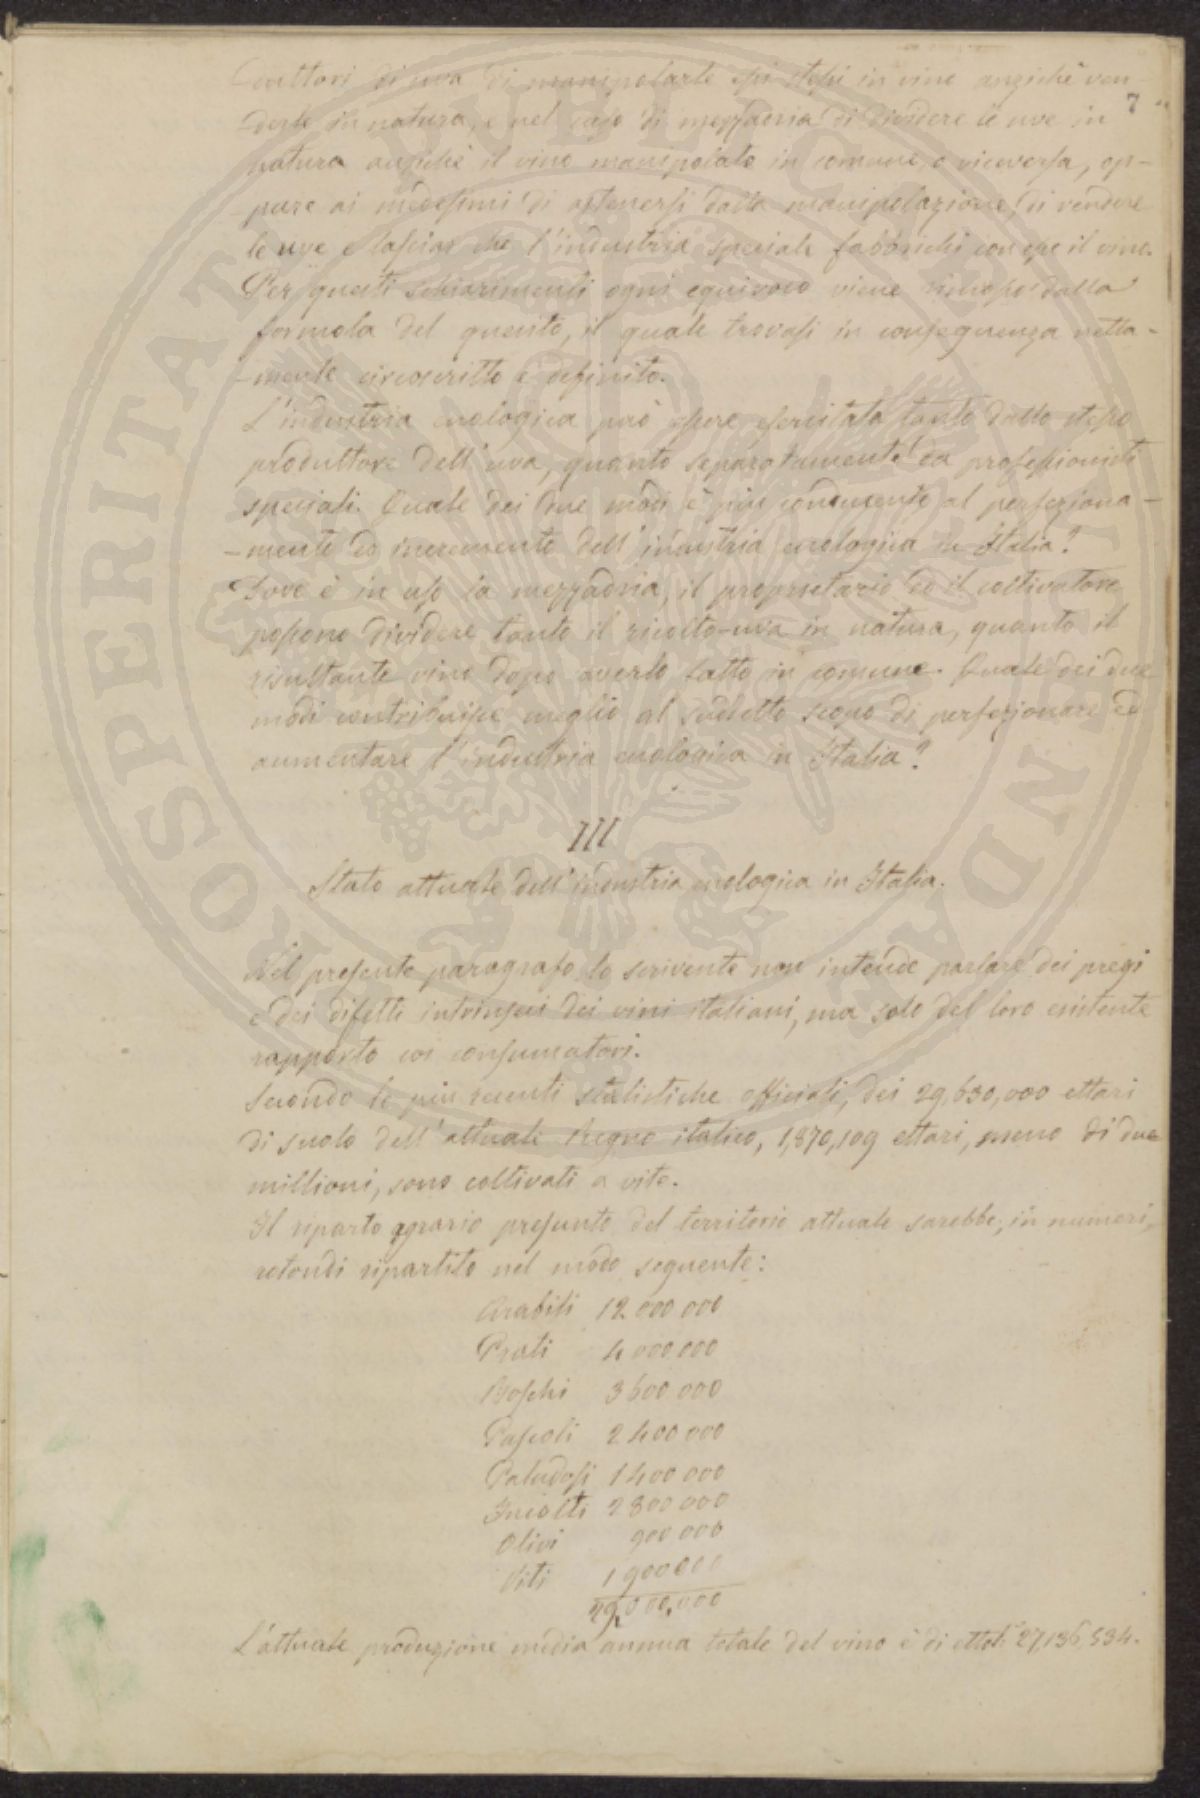 -duttori di uva di manipolarle essi stessi in vino anzichè ven-
7
-derle in natura, e nel caso di mezzadria di dividere le uve in
natura anzichè il vino manipolato in comune, o viceversa, op-
-pure ai medesimi di astenersi dalla manipolazione, di vendere
le uve e lasciar che l'industria speciale fabbrichi con esse il vino.
Per questi schiarimenti ogni equivoco viene rimosso dalla
formola del quesito, il quale trovasi in conseguenza netta-
-mente circoscritto e definito.
L'industria enologica può essere esercitata tanto dallo stesso
produttore dell'uva, quanto separatamente da professionisti
speciali. Quale dei due modi è più conducente al perfeziona-
-mento ed incremento dell'industria enologica in Italia?
Dove è in uso la mezzadria, il proprietario ed il coltivatore
possono dividere tanto il ricolto-uva in natura, quanto il
risultante vino dopo averlo fatto in comune. Quale dei due
modi contribuisce meglio al suddetto scopo di perfezionare ed
aumentare l'industria enologica in Italia?
III
Stato attuale dell'industria enologica in Italia.
Nel presente paragrafo lo scrivente non intende parlare dei pregi
e dei difetti intrinseci dei vini italiani, ma solo del loro esistente
rapporto coi consumatori.
Secondo le più recenti statistiche officiali, dei 29,630,000 ettari
di suolo dell'attuale Regno italico, 1,870,109 ettari, meno di due
millioni, sono coltivati a vite.
Il riparto agrario presunto del territorio attuale sarebbe, in numeri,
rotondi ripartito nel modo seguente:
Arabili 12 000 000
Prati 4 000.000
Boschi 3 600 000
Pascoli 2 400 000
Paludosi 1 400 000
Incolti 2 800 000
Olivi 900 000
Viti 1 900 000
29,000,000
L'attuale produzione media annua totale del vino è di ettol. 27,136,534.
PROSPERITATI PUBLICAE AUGENDAE